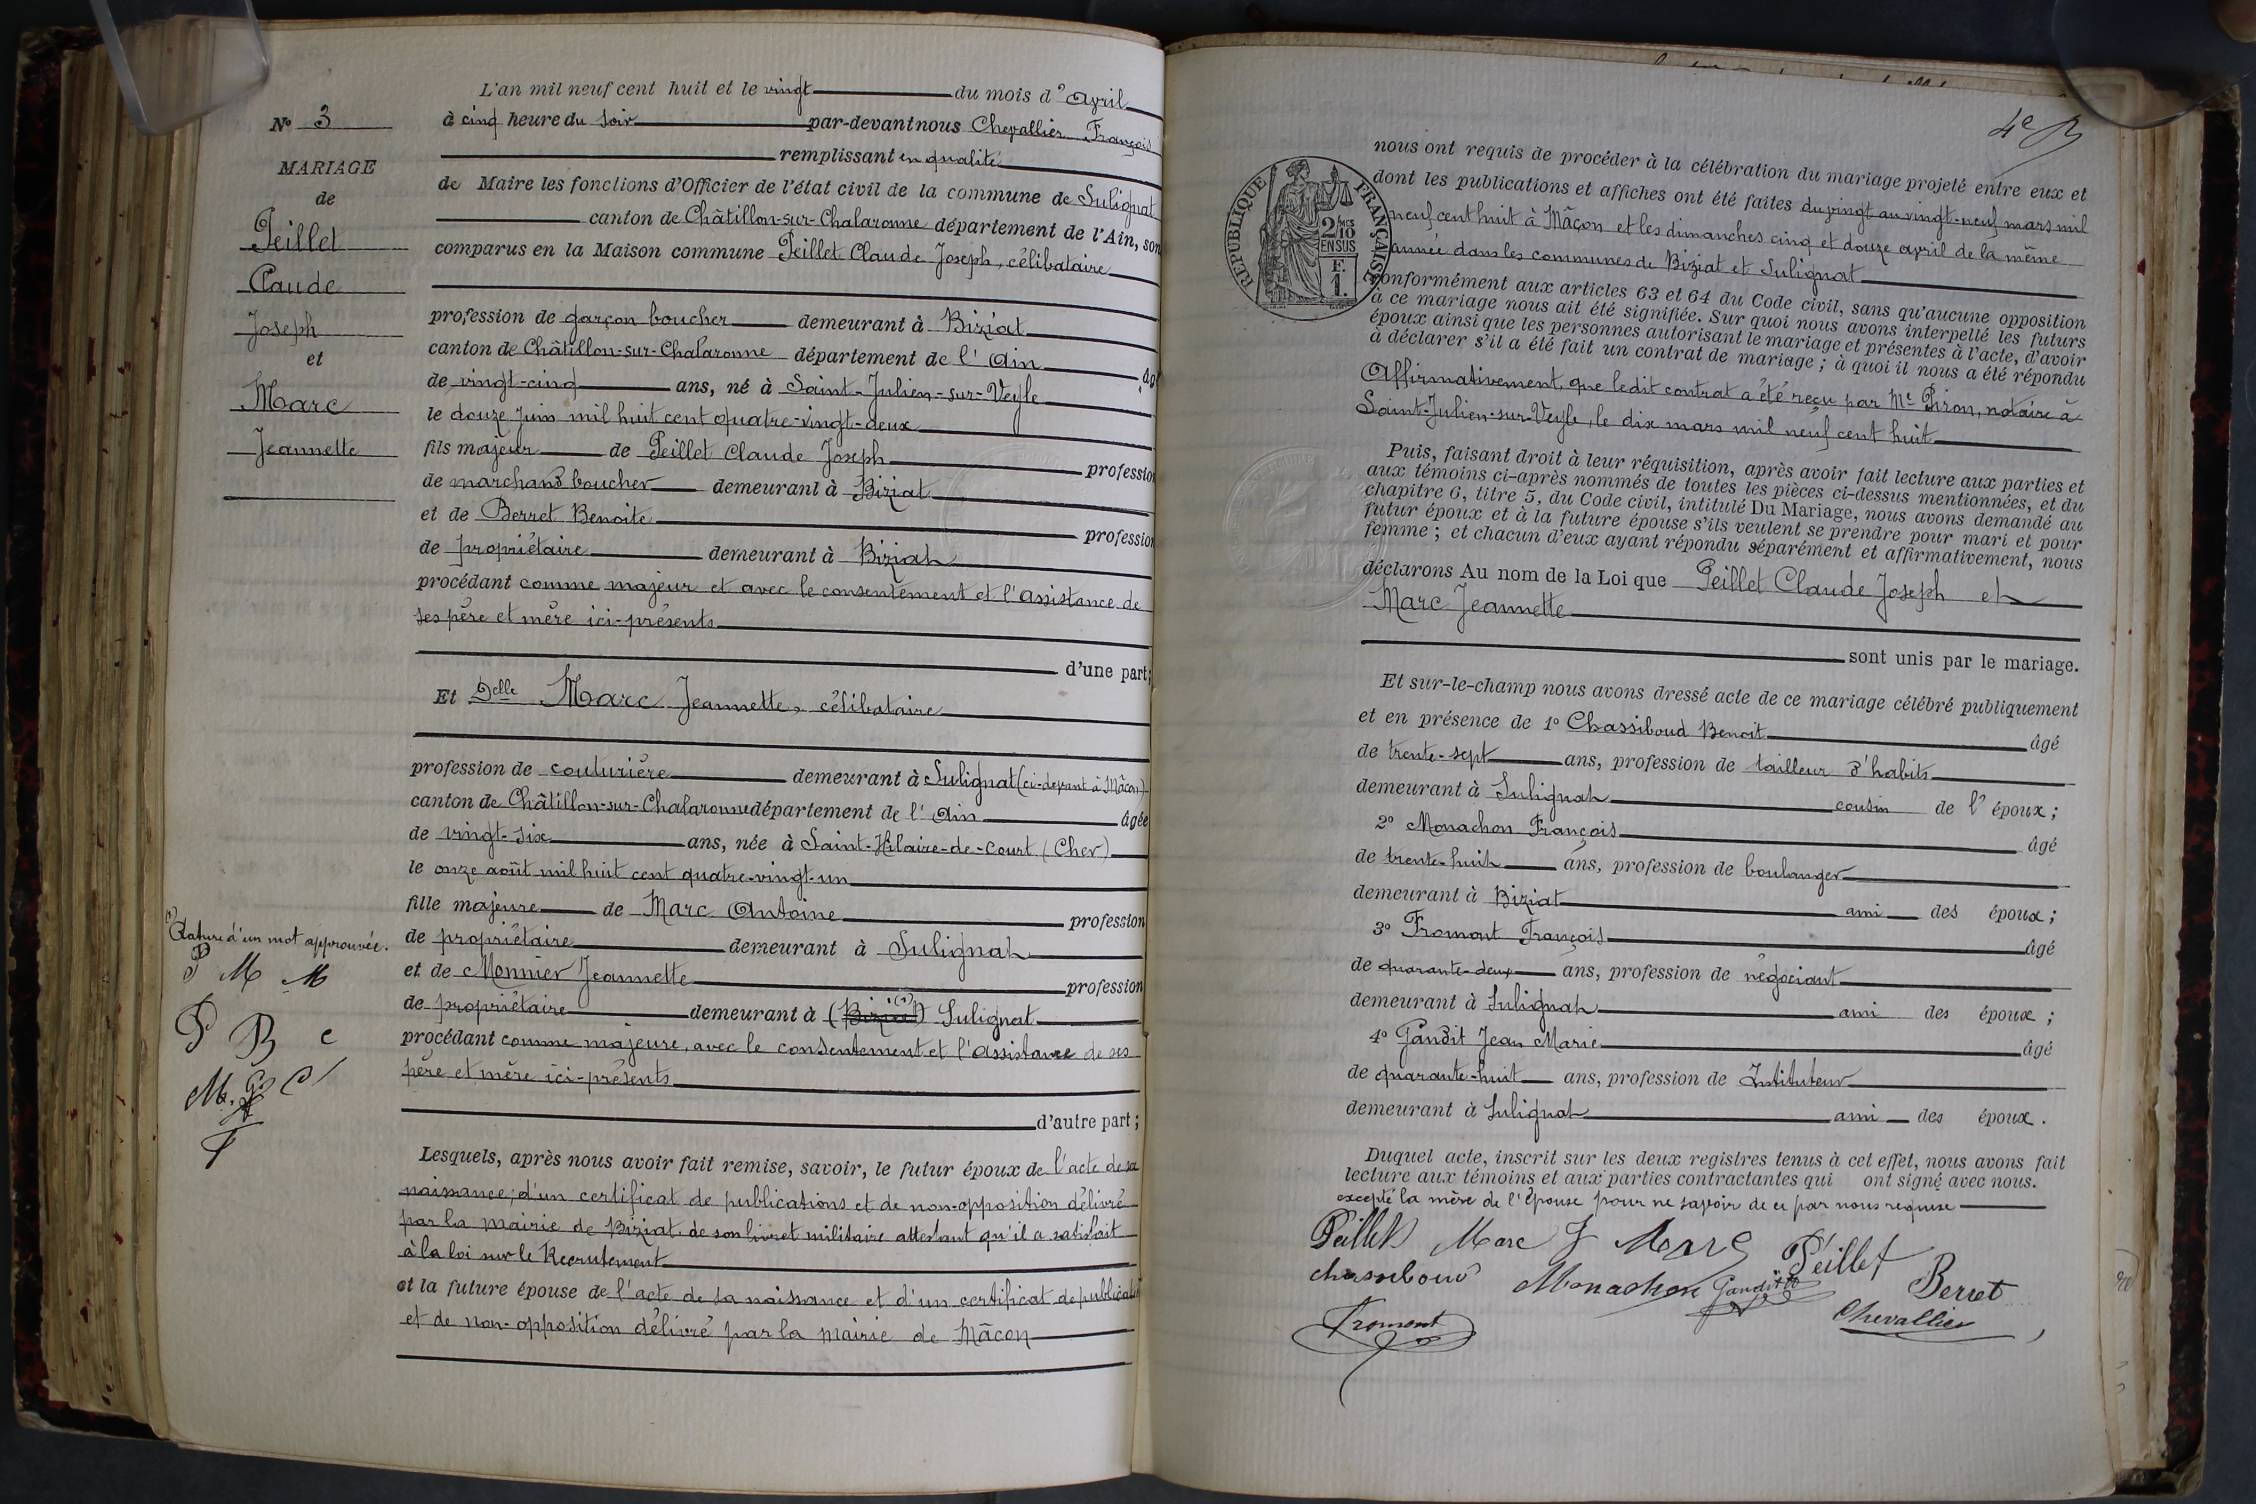 L'an mil neuf cent huit et le vingt du mois d'avril
à cinq heure du soir par-devant nous Chevallier François
remplissant en qualité
de Maire les fonctions d'Officier de l'état civil de la commune de Sulignat
canton de Châtillon-sur-Chalaronne département de l'Ain, son
comparus en la Maison commune Peillet Claude Joseph, célibataire
profession de garçon boucher demeurant à Biziat
canton de Châtillon-sur-Chalaronne département de l'Ain âgé
de vingt-cinq ans, né à Saint-Julien-sur-Veyle
le douze juin mil huit cent quatre-vingt-deux
fils majeur de Peillet Claude Joseph profession
de marchand boucher demeurant à Biziat
et de Berret Benoite profession
de propriétaire demeurant à Biziat
procédant comme majeur et avec le consentement et l'assistance de
ses père et mère ici-présents
d'une part;
Et Delle Marc Jeannette, célibataire
profession de couturière demeurant à Sulignat (ci-devant à Mâcon)
canton de Châtillon-sur-Chalaronne département de l'Ain âgée
de vingt-six ans, née à Saint-Hilaire-de-Court (Cher)
le onze août mil huit cent quatre-vingt-un
fille majeure de Marc Antoine profession
de propriétaire demeurant à Sulignat
et de Monnier Jeannette profession
de propriétaire demeurant à (Biziat) (1) Sulignat
procédant comme majeure, avec le consentement et l'assistance de ses
père et mère ici-présents
d'autre part;
Lesquels, après nous avoir fait remise, savoir, le futur époux de l'acte de sa
naissance; d'un certificat de publications et de non-opposition délivré
par la mairie de Biziat, de son livret militaire attestant qu'il a satisfait
à la loi sur le Recrutement
et la future épouse de l'acte de sa naissance et d'un certificat de publication
et de non-opposition délivré par la mairie de Mâcon
No 3
MARIAGE
de
Peillet
Claude
Joseph
et
Marc
Jeannette
(1)
Rature d'un mot approuvée.
P M M
P B C
M. G C
F
4e
nous ont requis de procéder à la célébration du mariage projeté entre eux et
dont les publications et affiches ont été faites du vingt au vingt-neuf mars mil
neuf cent huit à Mâcon et les dimanches cinq et douze avril de la même
année dans les communes de Biziat et Sulignat
conformément aux articles 63 et 64 du Code civil, sans qu'aucune opposition
à ce mariage nous ait été signifiée. Sur quoi nous avons interpellé les futurs
époux ainsi que les personnes autorisant le mariage et présentes à l'acte, d'avoir
à déclarer s'il a été fait un contrat de mariage; à quoi il nous a été répondu
Affirmativement, que ledit contrat a été reçu par Me Piron, notaire à
Saint-Julien-sur-Veyle, le dix mars mil neuf cent huit
Puis, faisant droit à leur réquisition, après avoir fait lecture aux parties et
aux témoins ci-après nommés de toutes les pièces ci-dessus mentionnées, et du
chapitre 6, titre 5, du Code civil, intitulé Du Mariage, nous avons demandé au
futur époux et à la future épouse s'ils veulent se prendre pour mari et pour
femme; et chacun d'eux ayant répondu séparément et affirmativement, nous
déclarons Au nom de la Loi que Peillet Claude Joseph et
Marc Jeannette
sont unis par le mariage.
Et sur-le-champ nous avons dressé acte de ce mariage célébré publiquement
et en présence de 1o Chassiboud Benoit âgé
de trente-sept ans, profession de tailleur d'habits
demeurant à Sulignat cousin de l'époux;
2o Monachon François âgé
de trente-huit ans, profession de boulanger
demeurant à Biziat ami des époux;
3o Fromont François âgé
de quarante-deux ans, profession de négociant
demeurant à Sulignat ami des époux;
4o Gandit Jean Marie âgé
de quarante-huit ans, profession de Instituteur
demeurant à Sulignat ami des époux.
Duquel acte, inscrit sur les deux registres tenus à cet effet, nous avons fait
lecture aux témoins et aux parties contractantes qui ont signé avec nous.
excepté la mère de l'épouse pour ne savoir de ce par nous requise
Peillet Marc J Marc Peillet
Chassiboud Monachon Gandit Berret
Fromont Chevallier
RÉPUBLIQUE FRANÇAISE
2 MES
10
EN SUS
F.
1.